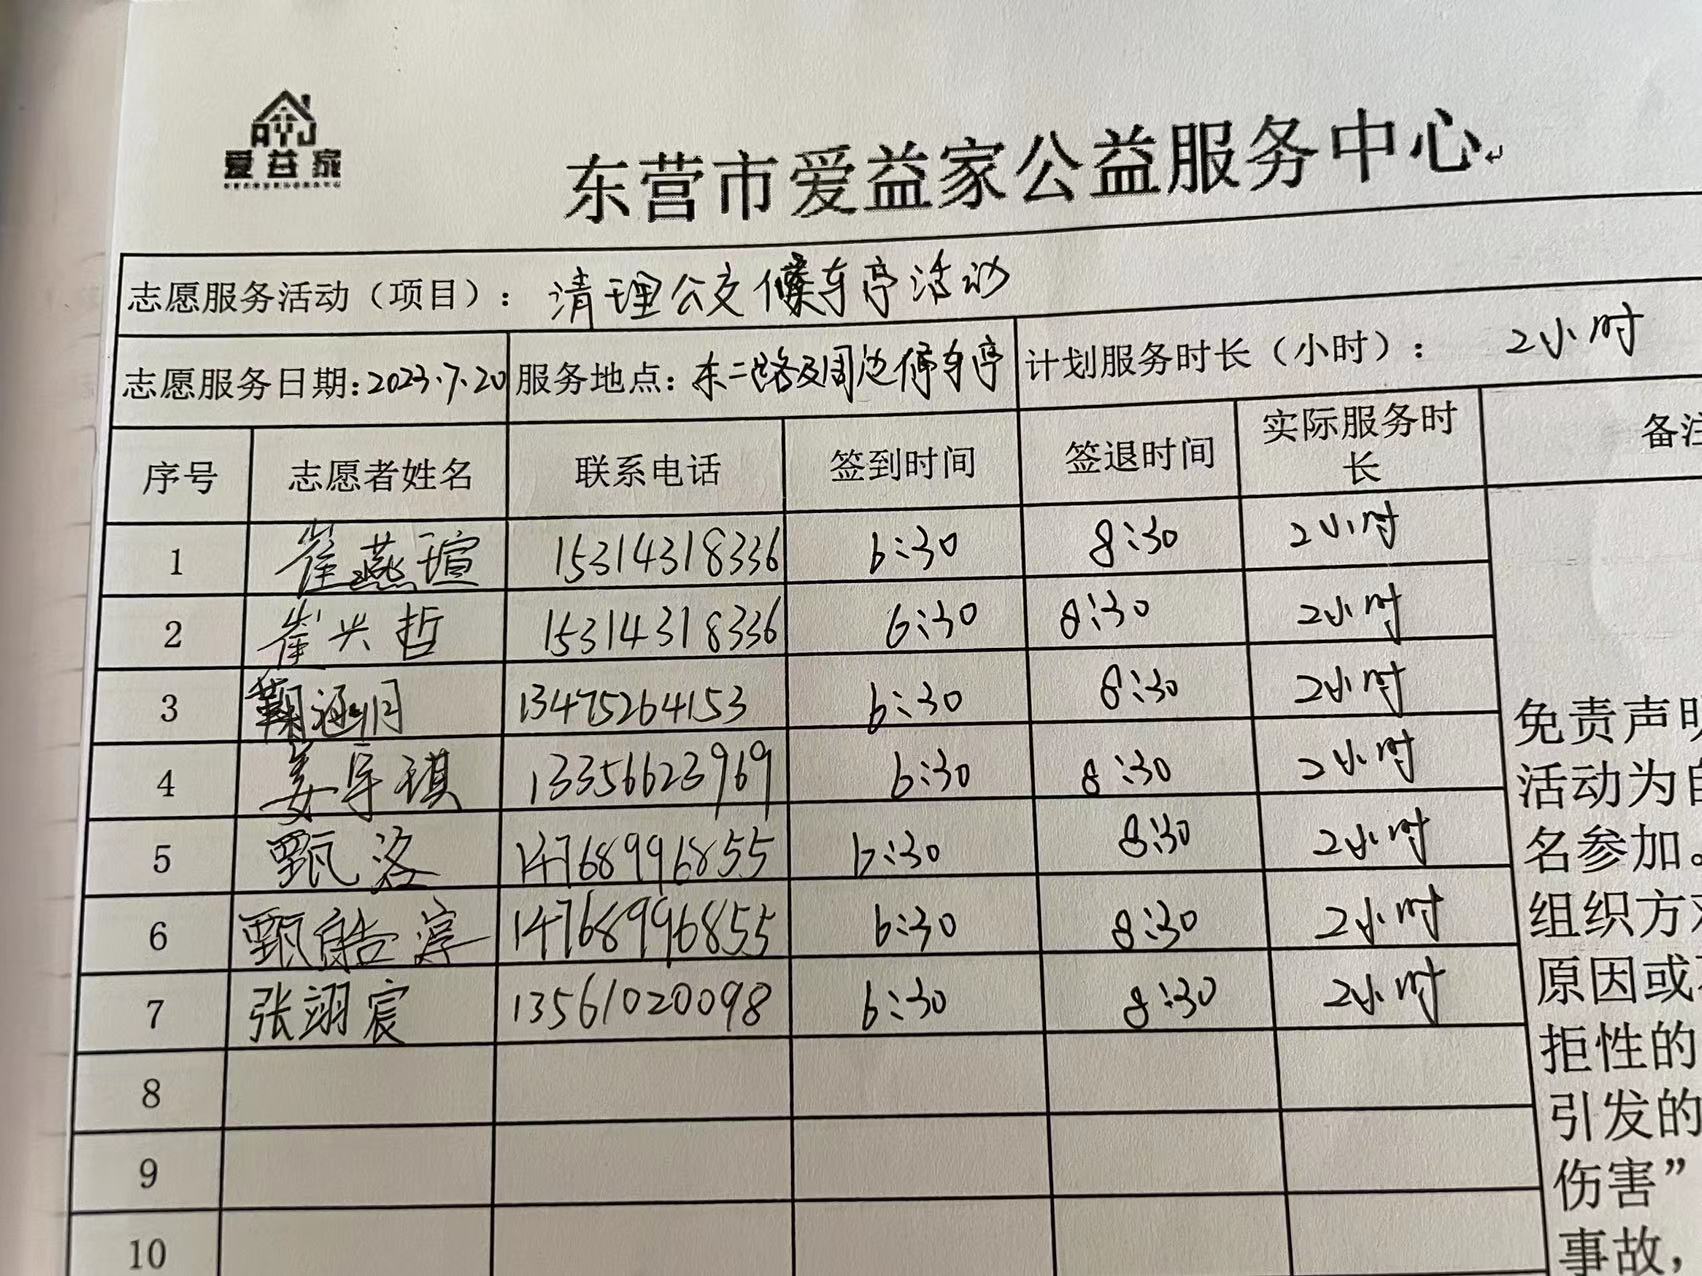 AYJ
爱益家
东营市爱益家公益服务中心
志愿服务活动（项目）： 清理公交候车亭活动
志愿服务日期:2023.7.20 服务地点: 东二路及周边停车亭 计划服务时长（小时）： 2小时
序号 志愿者姓名 联系电话 签到时间 签退时间 实际服务时长 备注
1 崔燕瑄 15314318336 6:30 8:30 2小时
2 崔兴哲 15314318336 6:30 8:30 2小时
3 鞠涵月 13475264153 6:30 8:30 2小时
4 姜宇琪 13356623969 6:30 8:30 2小时
5 甄洛 14768996855 6:30 8:30 2小时
6 甄皓淳 14768996855 6:30 8:30 2小时
7 张翊宸 13561020098 6:30 8:30 2小时
8
9
10
免责声明
活动为自
名参加。
组织方对
原因或不
拒性的
引发的
伤害”
事故，